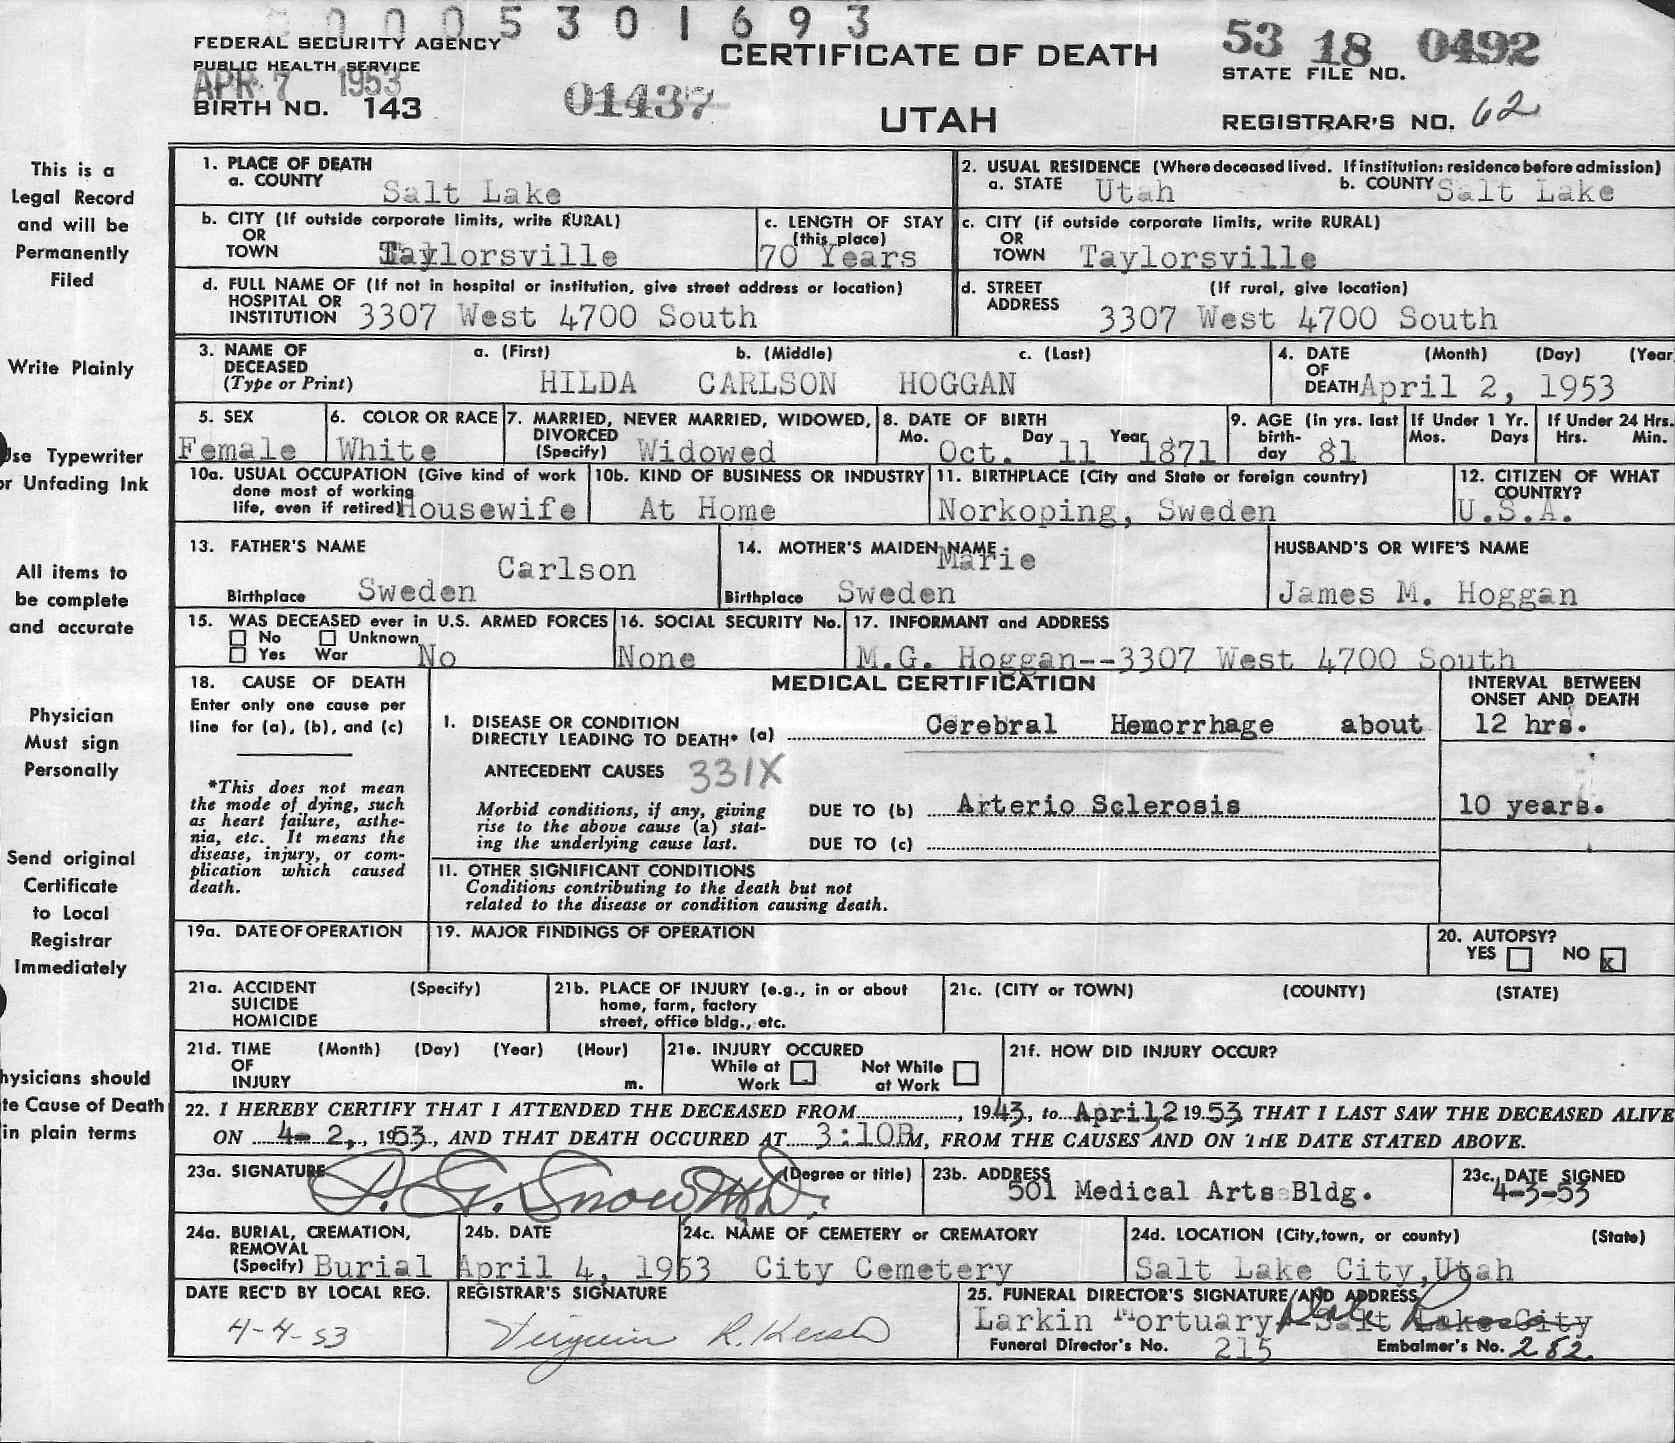 0005301693
FEDERAL SECURITY AGENCY
PUBLIC HEALTH SERVICE
APR 7 1953
BIRTH NO. 143
01437
CERTIFICATE OF DEATH
UTAH
53 18 0492
STATE FILE NO.
REGISTRAR'S NO. 62
This is a
Legal Record
and will be
Permanently
Filed
Write Plainly
Use Typewriter
or Unfading Ink
All items to
be complete
and accurate
Physician
Must sign
Personally
Send original
Certificate
to Local
Registrar
Immediately
hysicians should
te Cause of Death
in plain terms
1. PLACE OF DEATH
a. COUNTY Salt Lake
2. USUAL RESIDENCE (Where deceased lived. If institution: residence before admission)
a. STATE Utah b. COUNTY Salt Lake
b. CITY (If outside corporate limits, write RURAL)
OR
TOWN Taylorsville
c. LENGTH OF STAY
(this place)
70 Years
c. CITY (if outside corporate limits, write RURAL)
OR
TOWN Taylorsville
d. FULL NAME OF (If not in hospital or institution, give street address or location)
HOSPITAL OR
INSTITUTION 3307 West 4700 South
d. STREET (If rural, give location)
ADDRESS
3307 West 4700 South
3. NAME OF a. (First) b. (Middle) c. (Last)
DECEASED
(Type or Print) HILDA CARLSON HOGGAN
4. DATE (Month) (Day) (Year
OF
DEATH April 2, 1953
5. SEX
Female
6. COLOR OR RACE
White
7. MARRIED, NEVER MARRIED, WIDOWED,
DIVORCED
(Specify) Widowed
8. DATE OF BIRTH
Mo. Day Year
Oct. 11 1871
9. AGE (in yrs. last
birth-
day 81
If Under 1 Yr.
Mos. Days
If Under 24 Hrs.
Hrs. Min.
10a. USUAL OCCUPATION (Give kind of work
done most of working
life, even if retired) Housewife
10b. KIND OF BUSINESS OR INDUSTRY
At Home
11. BIRTHPLACE (City and State or foreign country)
Norkoping, Sweden
12. CITIZEN OF WHAT
COUNTRY?
U.S.A.
13. FATHER'S NAME
Carlson
Birthplace Sweden
14. MOTHER'S MAIDEN NAME
Marie
Birthplace Sweden
HUSBAND'S OR WIFE'S NAME
James M. Hoggan
15. WAS DECEASED ever in U.S. ARMED FORCES
No Unknown
Yes War No
16. SOCIAL SECURITY No.
None
17. INFORMANT and ADDRESS
M.G. Hoggan--3307 West 4700 South
18. CAUSE OF DEATH
Enter only one cause per
line for (a), (b), and (c)
*This does not mean
the mode of dying, such
as heart failure, asthe-
nia, etc. It means the
disease, injury, or com-
plication which caused
death.
MEDICAL CERTIFICATION
INTERVAL BETWEEN
ONSET AND DEATH
I. DISEASE OR CONDITION
DIRECTLY LEADING TO DEATH* (a) Cerebral Hemorrhage about 12 hrs.
ANTECEDENT CAUSES 331X
Morbid conditions, if any, giving
rise to the above cause (a) stat-
ing the underlying cause last.
DUE TO (b) Arterio Sclerosis 10 years.
DUE TO (c)
11. OTHER SIGNIFICANT CONDITIONS
Conditions contributing to the death but not
related to the disease or condition causing death.
19a. DATE OF OPERATION
19. MAJOR FINDINGS OF OPERATION
20. AUTOPSY?
YES NO x
21a. ACCIDENT (Specify)
SUICIDE
HOMICIDE
21b. PLACE OF INJURY (e.g., in or about
home, farm, factory
street, office bldg., etc.
21c. (CITY or TOWN) (COUNTY) (STATE)
21d. TIME (Month) (Day) (Year) (Hour)
OF
INJURY m.
21e. INJURY OCCURED
While at Not While
Work at Work
21f. HOW DID INJURY OCCUR?
22. I HEREBY CERTIFY THAT I ATTENDED THE DECEASED FROM , 1943, to April 2 1953 THAT I LAST SAW THE DECEASED ALIVE
ON 4-2, 1953, AND THAT DEATH OCCURED AT 3:10P M, FROM THE CAUSES AND ON THE DATE STATED ABOVE.
23a. SIGNATURE (Degree or title)
Snow M.D.
23b. ADDRESS
501 Medical Arts Bldg.
23c. DATE SIGNED
4-3-53
24a. BURIAL, CREMATION,
REMOVAL
(Specify) Burial
24b. DATE
April 4, 1953
24c. NAME OF CEMETERY or CREMATORY
City Cemetery
24d. LOCATION (City, town, or county) (State)
Salt Lake City, Utah
DATE REC'D BY LOCAL REG.
4-4-53
REGISTRAR'S SIGNATURE
25. FUNERAL DIRECTOR'S SIGNATURE AND ADDRESS
Larkin Mortuary--Salt Lake City
Funeral Director's No. 215 Embalmer's No. 282